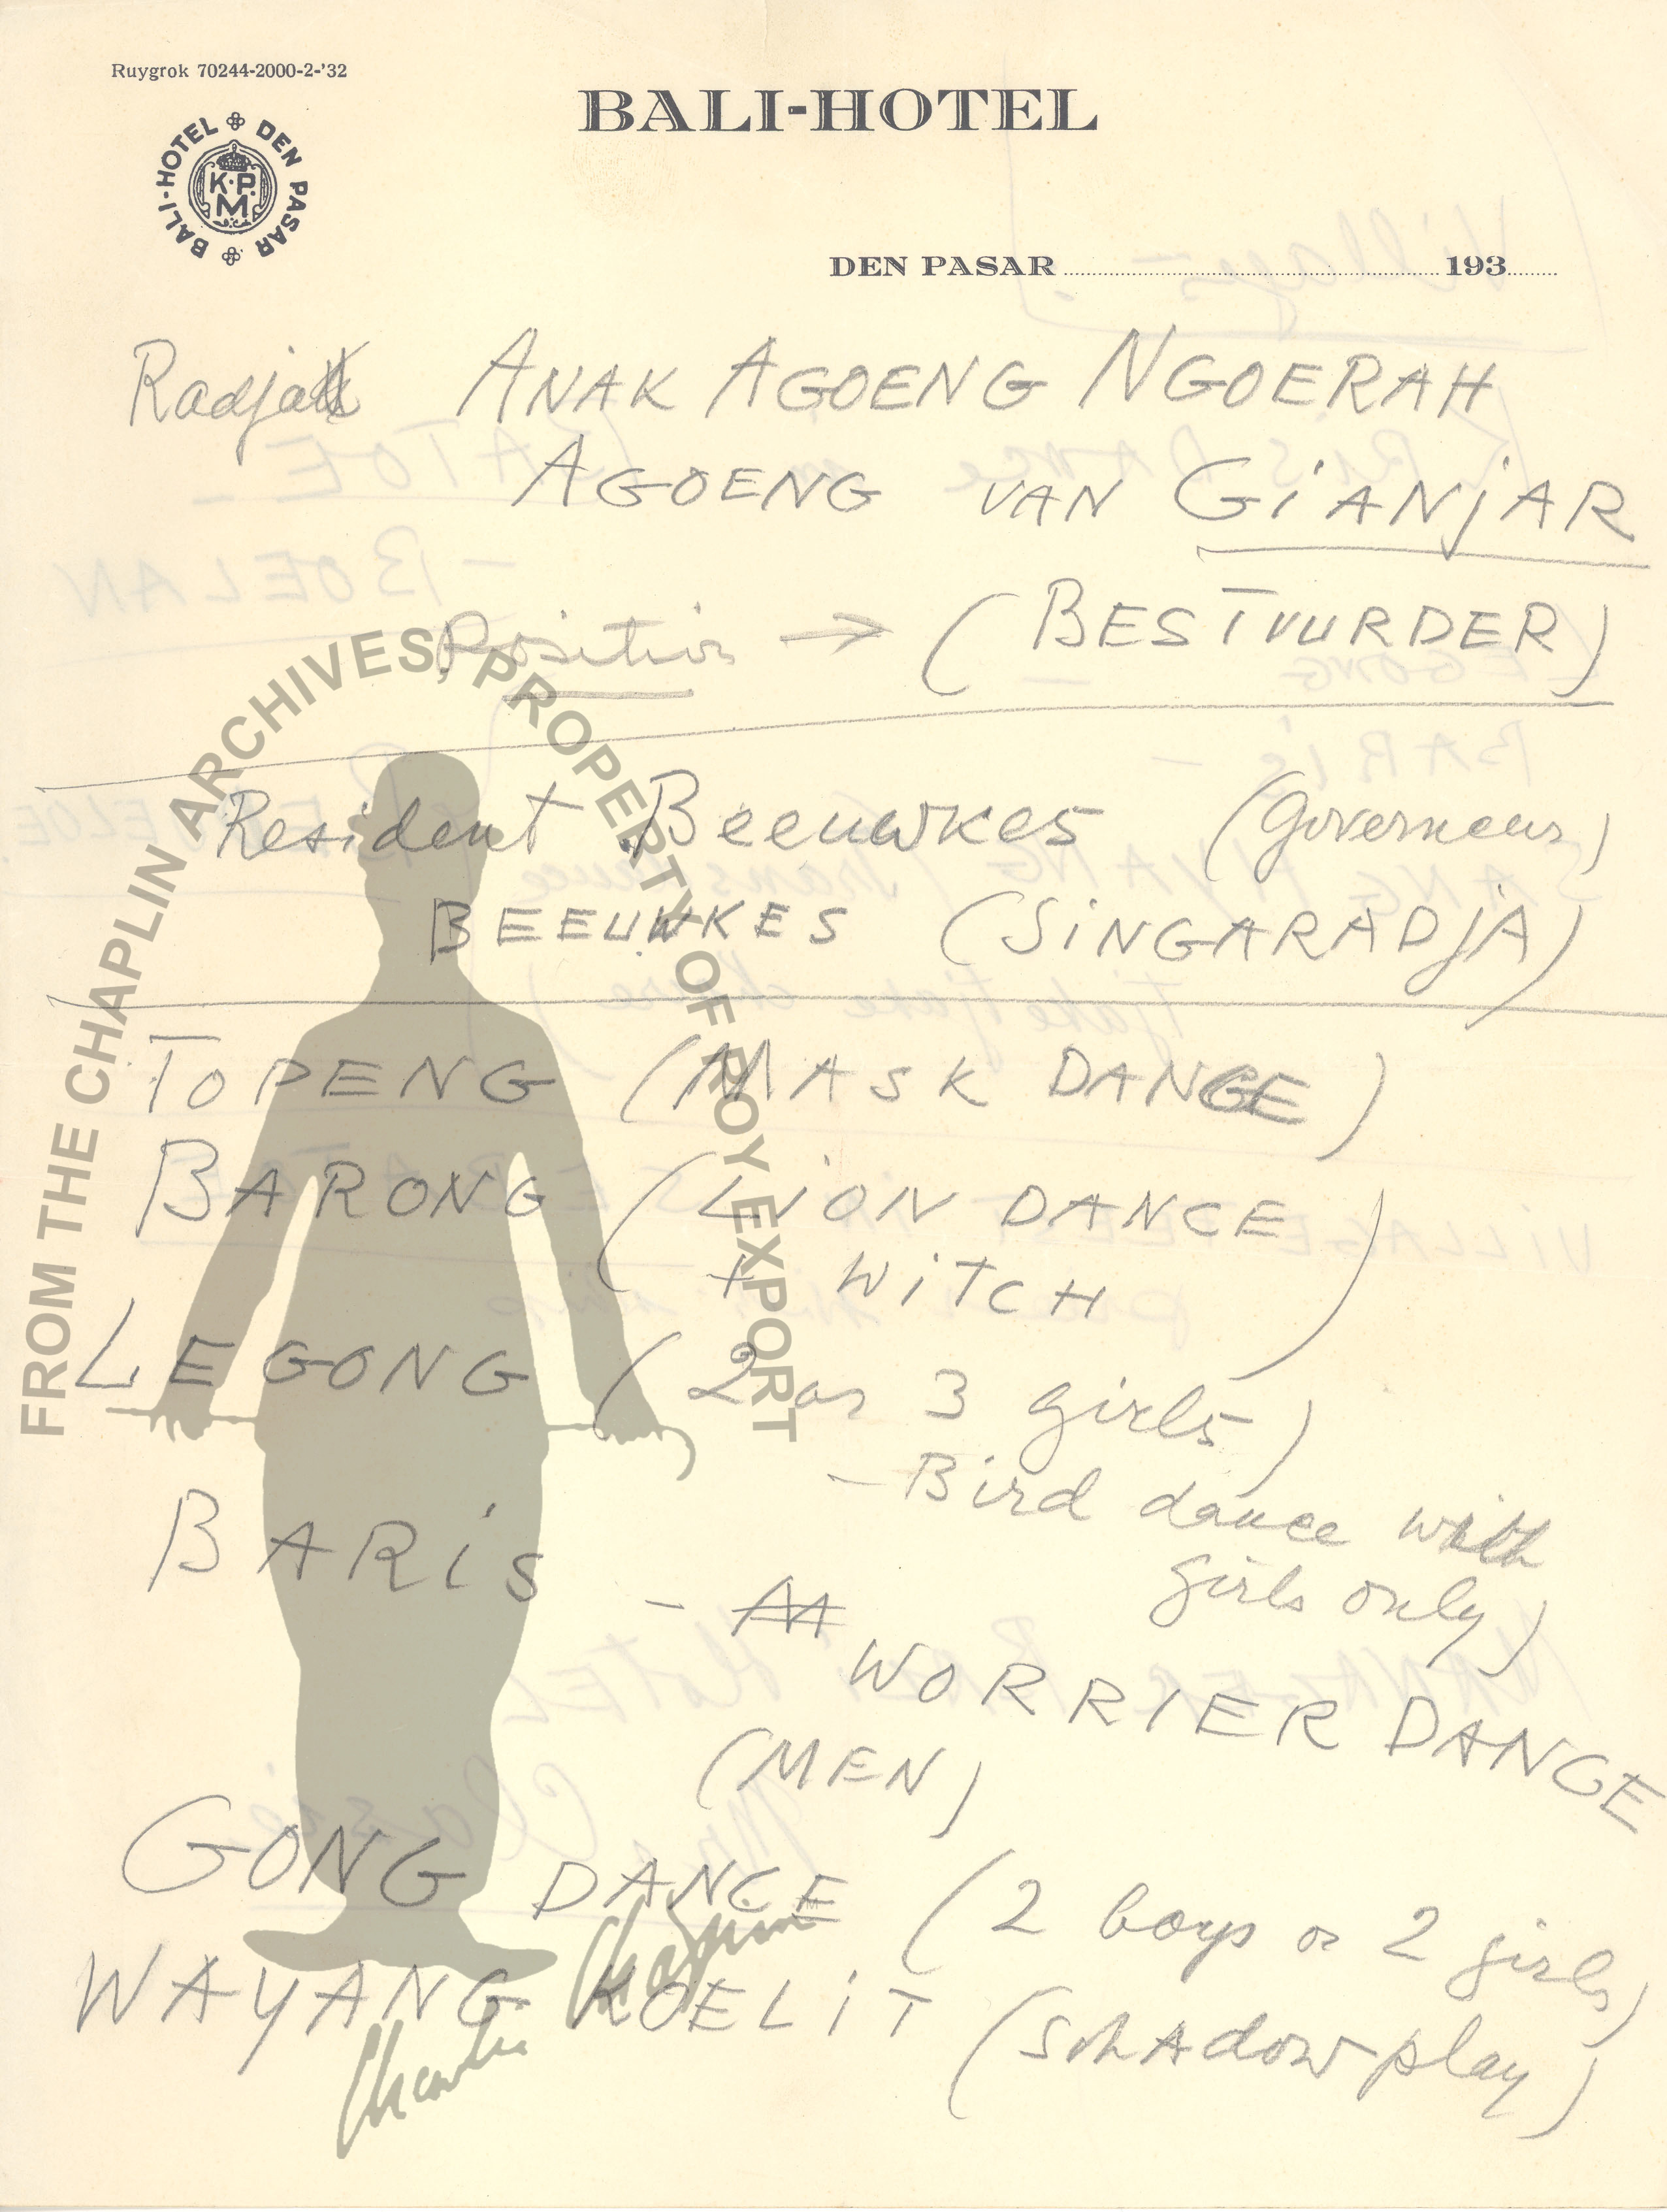 Ruygrok 70244-2000-2-'32
BALI-HOTEL
BALI-HOTEL DEN PASAR
K.P.
M
DEN PASAR 193
Radja ANAK AGOENG NGOERAH
AGOENG VAN GiANjAR
Position → (BESTUURDER)
Resident Beeuwkes (Governeur)
BEEUWKES (SiNGARADjA)
TOPENG (MASK DANCE)
BARONG (LiON DANCE
+ WiTCH)
LEGONG (2 or 3 girls)
- Bird dance with
girls only)
BARiS -
WORRIER DANCE
(MEN)
GONG DANCE (2 boys or 2 girls)
WAYANG KOELiT (schadowplay)
FROM THE CHAPLIN ARCHIVES, PROPERTY OF ROY EXPORT
Charlie Chaplin